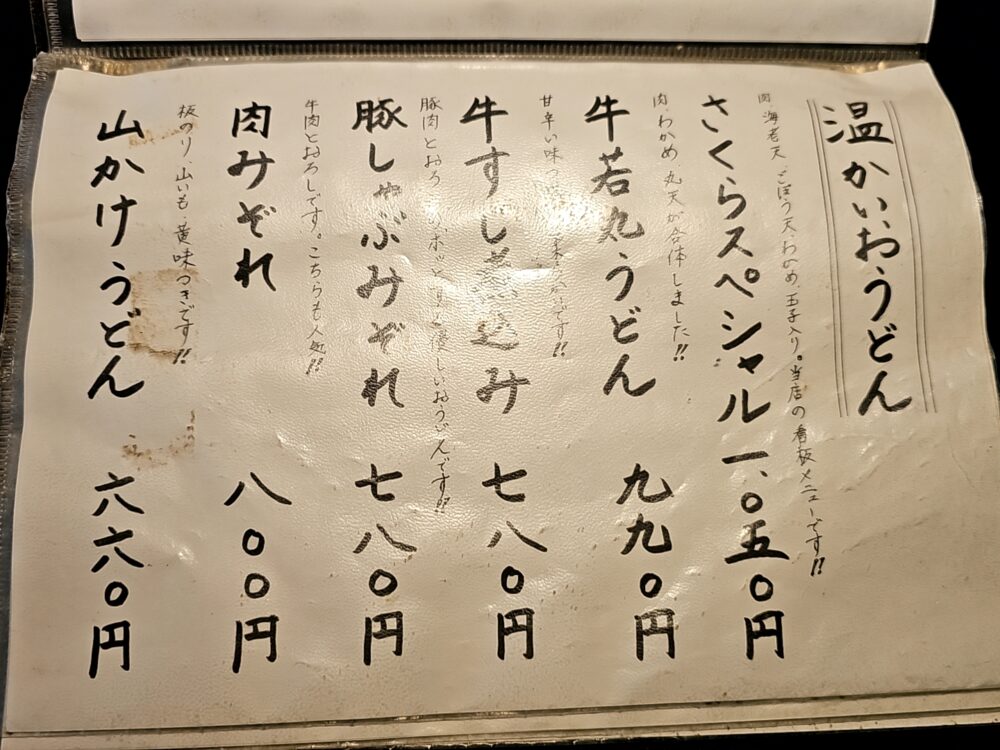 温かいおうどん
肉、海老天、ごぼう天、わかめ、玉子入り。当店の看板メニューです!!
さくらスペシャル 一、〇五〇円
肉、わかめ、丸天が合体しました!!
牛若丸うどん 九九〇円
甘辛い味つ です!!
牛すじ煮込み 七八〇円
豚肉とおろ ホッと 優しいおうどんです!!
豚しゃぶみぞれ 七八〇円
牛肉とおろしです。こちらも人気!!
肉みぞれ 八〇〇円
板のり、山いも、黄味つきです!!
山かけうどん 六六〇円